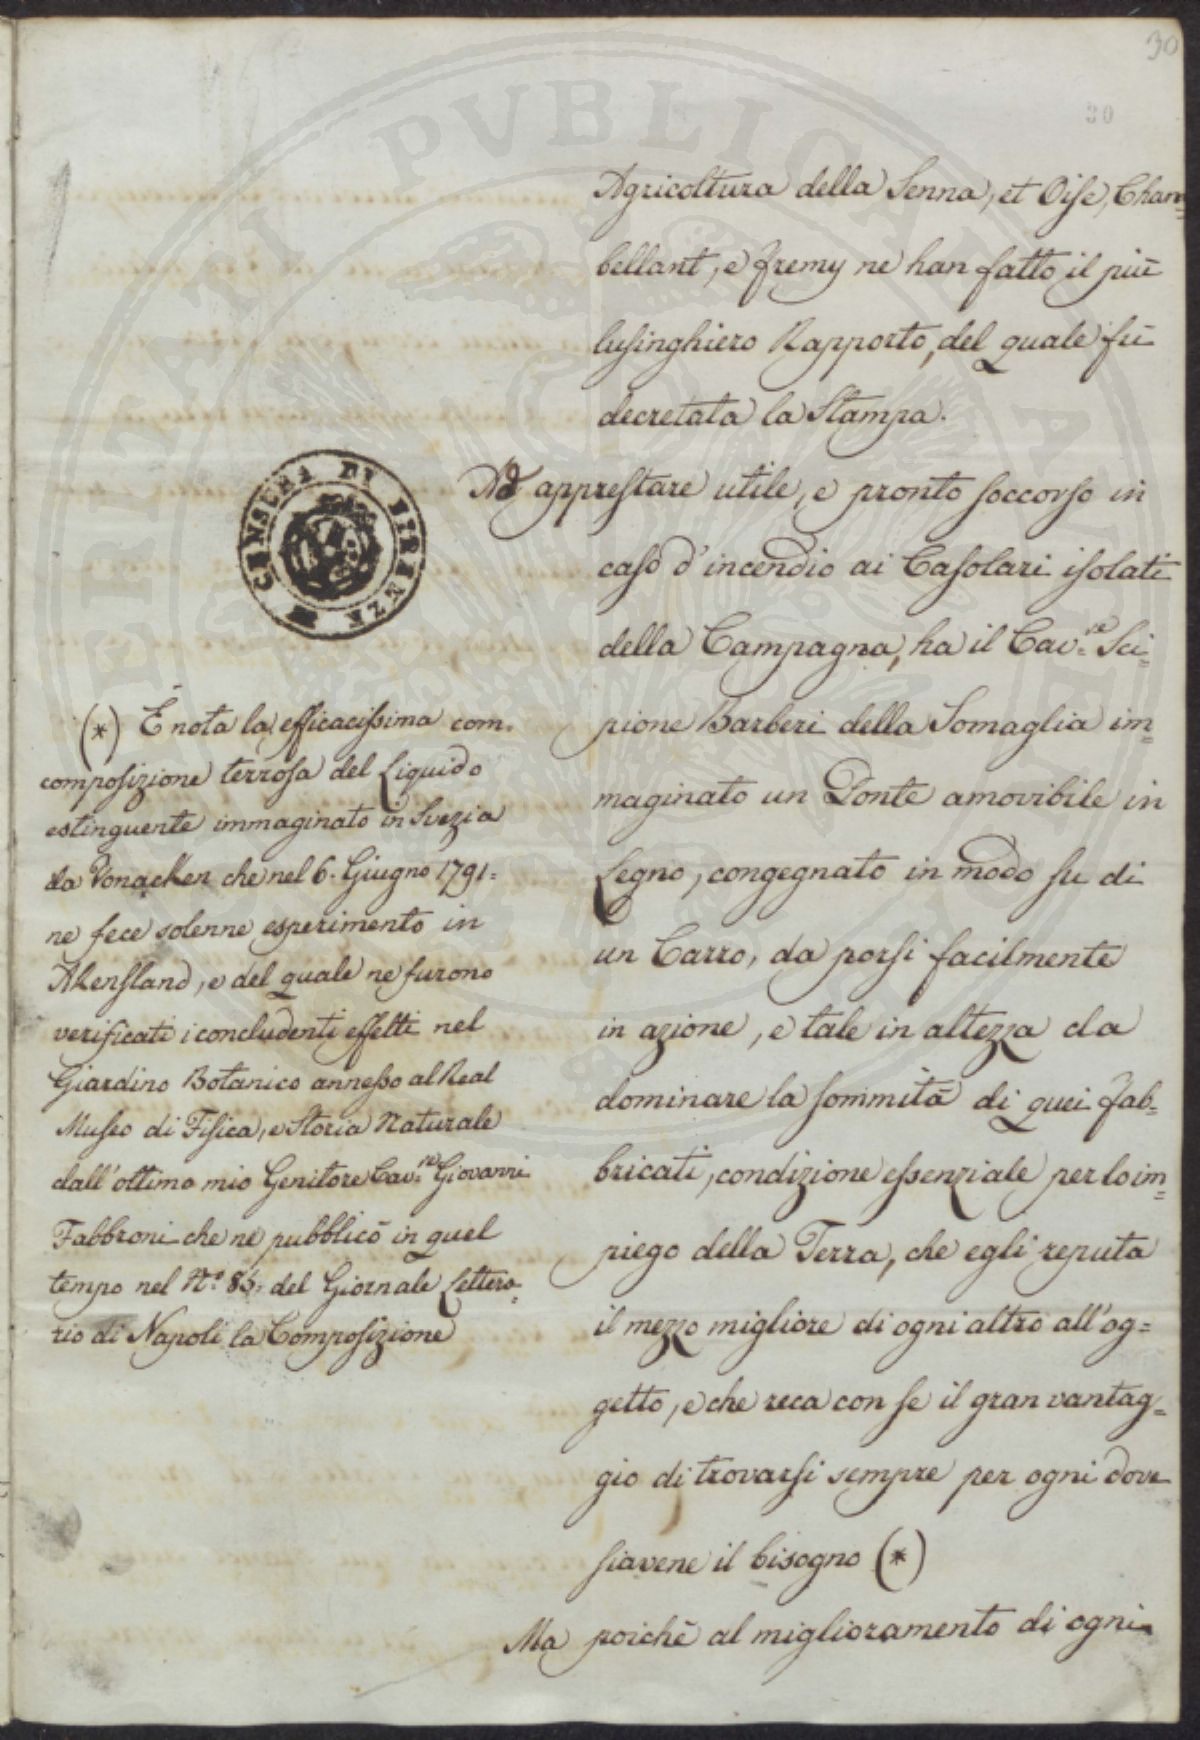 30
30
Agricoltura della Senna, et Oise, Cham=
bellant, e Fremy ne han fatto il più
lusinghiero Rapporto, del quale fù
decretata la Stampa.
Ad apprestare utile, e pronto soccorso in
caso d'incendio ai Casolari isolati
della Campagna, ha il Cav.re Sci=
pione Barberi della Somaglia im=
maginato un Ponte amovibile in
Legno, congegnato in modo su di
un Carro, da porsi facilmente
in azione, e tale in altezza da
dominare la sommità di quei Fab=
bricati, condizione essenziale per lo im=
piego della Terra, che egli reputa
il mezzo migliore di ogni altro all'og=
getto, e che reca con se il gran vantag=
gio di trovarsi sempre per ogni dove
siavene il bisogno (*)
Ma poichè al miglioramento di ogni
CENSURA DI FIRENZE
(*) È nota la efficacissima com.
composizione terrosa del Liquido
estinguente immaginato in Svezia
da Vonacken che nel 6. Giugno 1791=
ne fece solenne esperimento in
Akensland, e del quale ne furono
verificati i concludenti effetti nel
Giardino Botanico annesso al Real
Museo di Fisica, e Storia Naturale
dall'ottimo mio Genitore Cav.re Giovanni
Fabbroni che ne pubblicò in quel
tempo nel N.o 85, del Giornale Lettera=
rio di Napoli la Composizione
VERITATI PVBLICAE